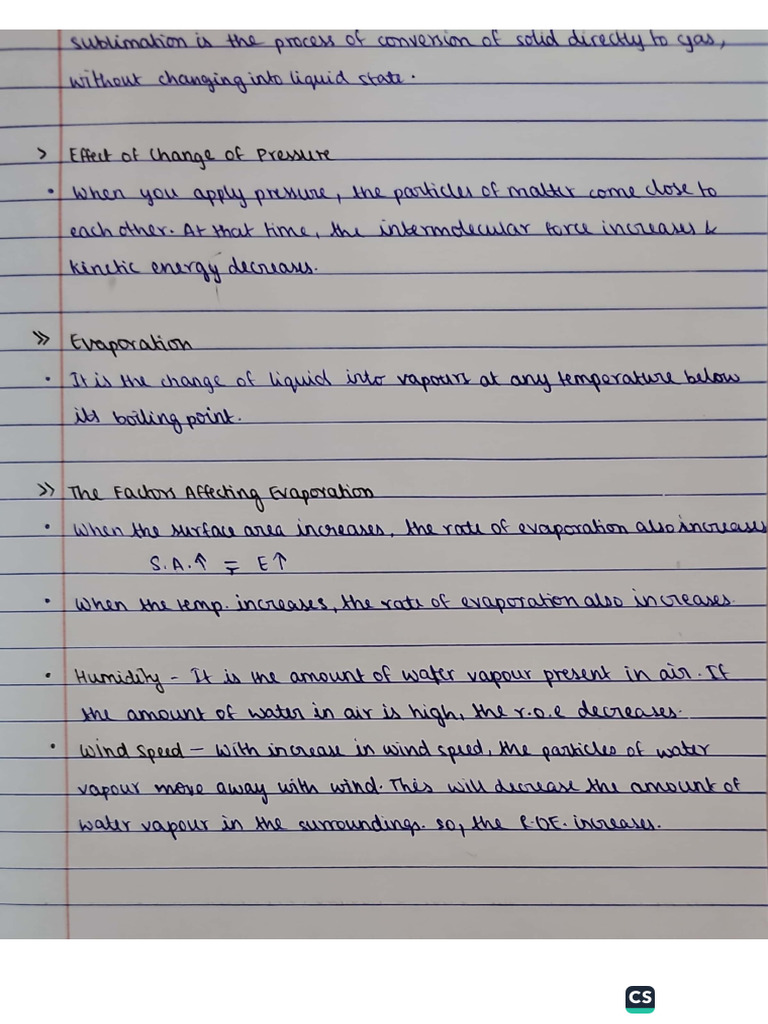 sublimation is the process of conversion of solid directly to gas,
without changing into liquid state.
> Effect of Change of Pressure
• When you apply pressure, the particles of matter come close to
each other. At that time, the intermolecular force increases &
kinetic energy decreases.
>> Evaporation
• It is the change of liquid into vapours at any temperature below
its boiling point.
>> The Factors Affecting Evaporation
• When the surface area increases, the rate of evaporation also increases
S.A.↑ = E↑
• When the temp. increases, the rate of evaporation also increases.
• Humidity - It is the amount of water vapour present in air. If
the amount of water in air is high, the r.o.e decreases.
• Wind Speed - With increase in wind speed, the particles of water
vapour move away with wind. This will decrease the amount of
water vapour in the surroundings. so, the R.OE. increases.
CS